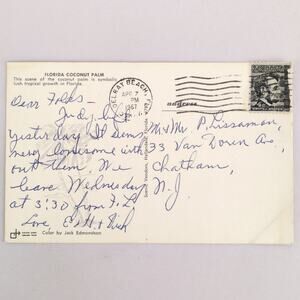 FLORIDA COCONUT PALM
This scene of the coconut palm is symbolic
lush tropical growth in Florida.
DELRAY BEACH, FLA.
APR 7
PM
1967
address
Dear Folks -
Judy
yesterday. It seems
very lonesome with
out them. We
leave Wednesday
at 3:30 from Ft. L.
Love,
Mr & Mrs P. Lissaman,
33 Van Doren Ave,
Chatham,
N.J.
Color by Jack Edmondson